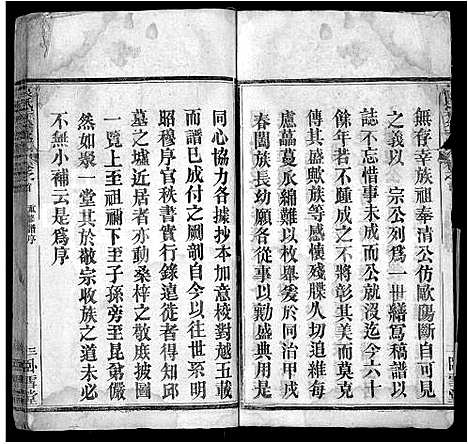 無存幸族祖奉清公仿歐陽斷自可見
之義以 宗公列爲一世繕寫稿譜以
誌不忘惜事未成而公沒迄今六十
餘年若不績而成之將彰其美而莫克
盡藴戚族等感慨懷殘牒人切追維每
慮藟蔓瓜緜難以枚舉爰於同治
春闔族長幼願各從事勷勷盛典用是
同心協力各據抄本加意校對越五載
而譜已成付之剞劂自今以往世系明
昭穆序官秩書實行錄遠徙者得知邱
墓之墟近居者亦動桑梓之敬庶披圖
一覽上至祖禰下至子孫旁至昆弟儼
然如聚一堂其於敬宗收族之道未必
不無小補云是爲序
三 臥雪堂